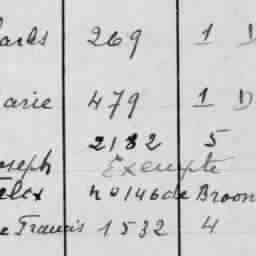 arls 269 1 D
arie 479 1 D
2182 5
oseph Exempte
Felex de Broon
e Francis 1532 4